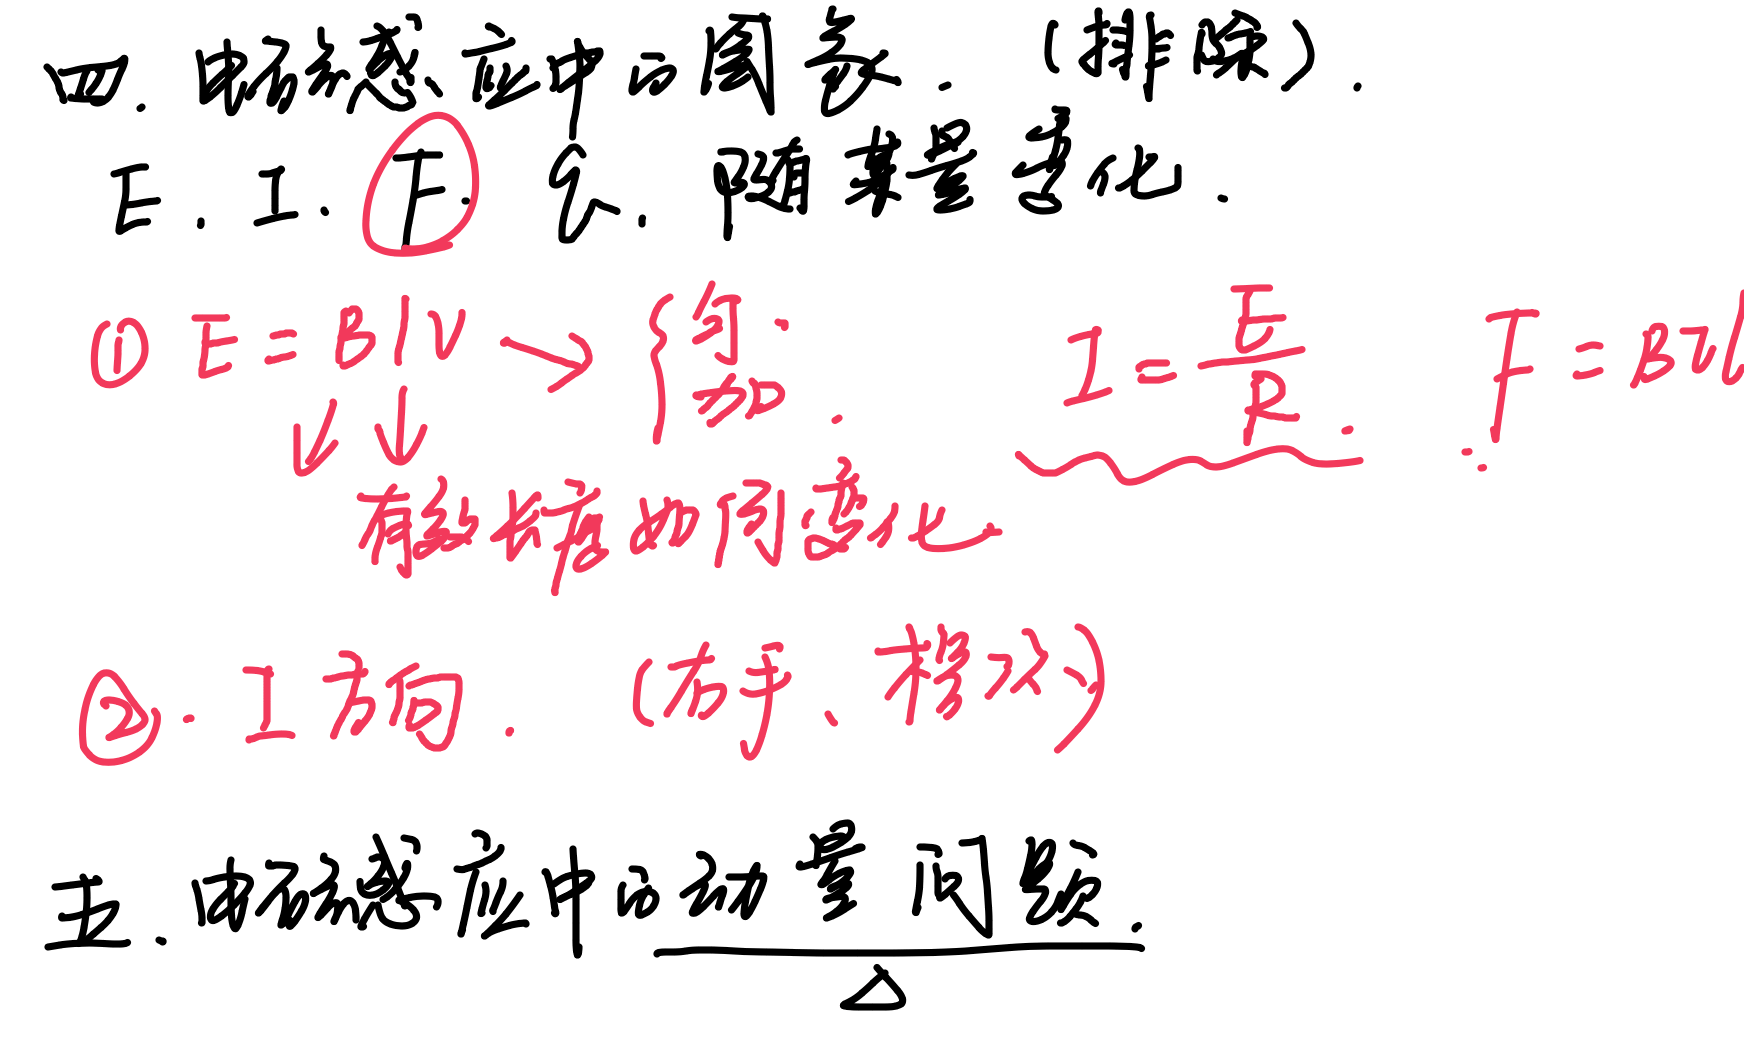 四.电磁感应中的图象.(排除).
E.I.F.q.随某量变化.
① E=BlV→{匀.加. I=E/R. F=BIl
有效长度如何变化
②.I方向.(右手、楞次)
五.电磁感应中的动量问题.